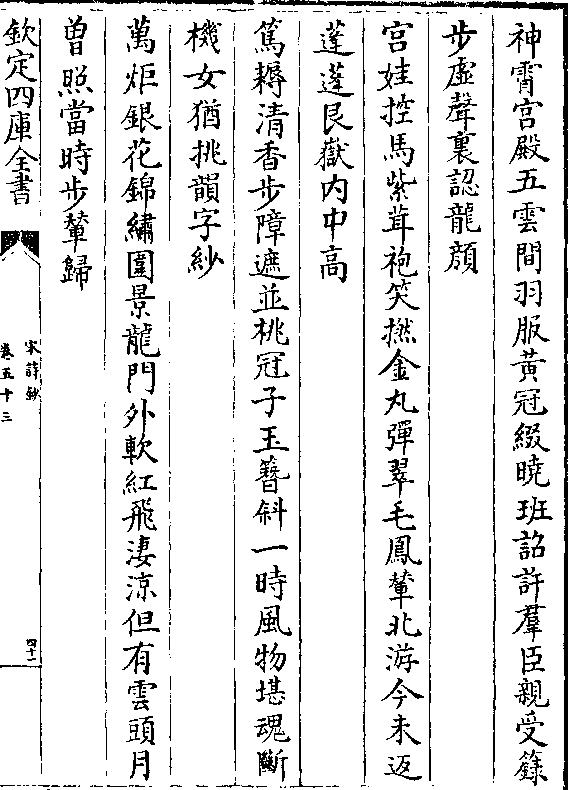 神霄宫殿五雲間羽服黄冠綴曉班詔許羣臣親受籙
步虚聲裏認龍顔
宫娃控馬紫茸袍笑撚金丸彈翠毛鳳輦北游今未返
蓬蓬艮嶽内中高
篤耨清香步障遮並桃冠子玉簪斜一時風物堪魂斷
機女猶挑韻字紗
萬炬銀花錦繡圍景龍門外軟紅飛淒涼但有雲頭月
曽照當時步輦歸
欽定四庫全書
宋詩鈔
卷五十三
四十二